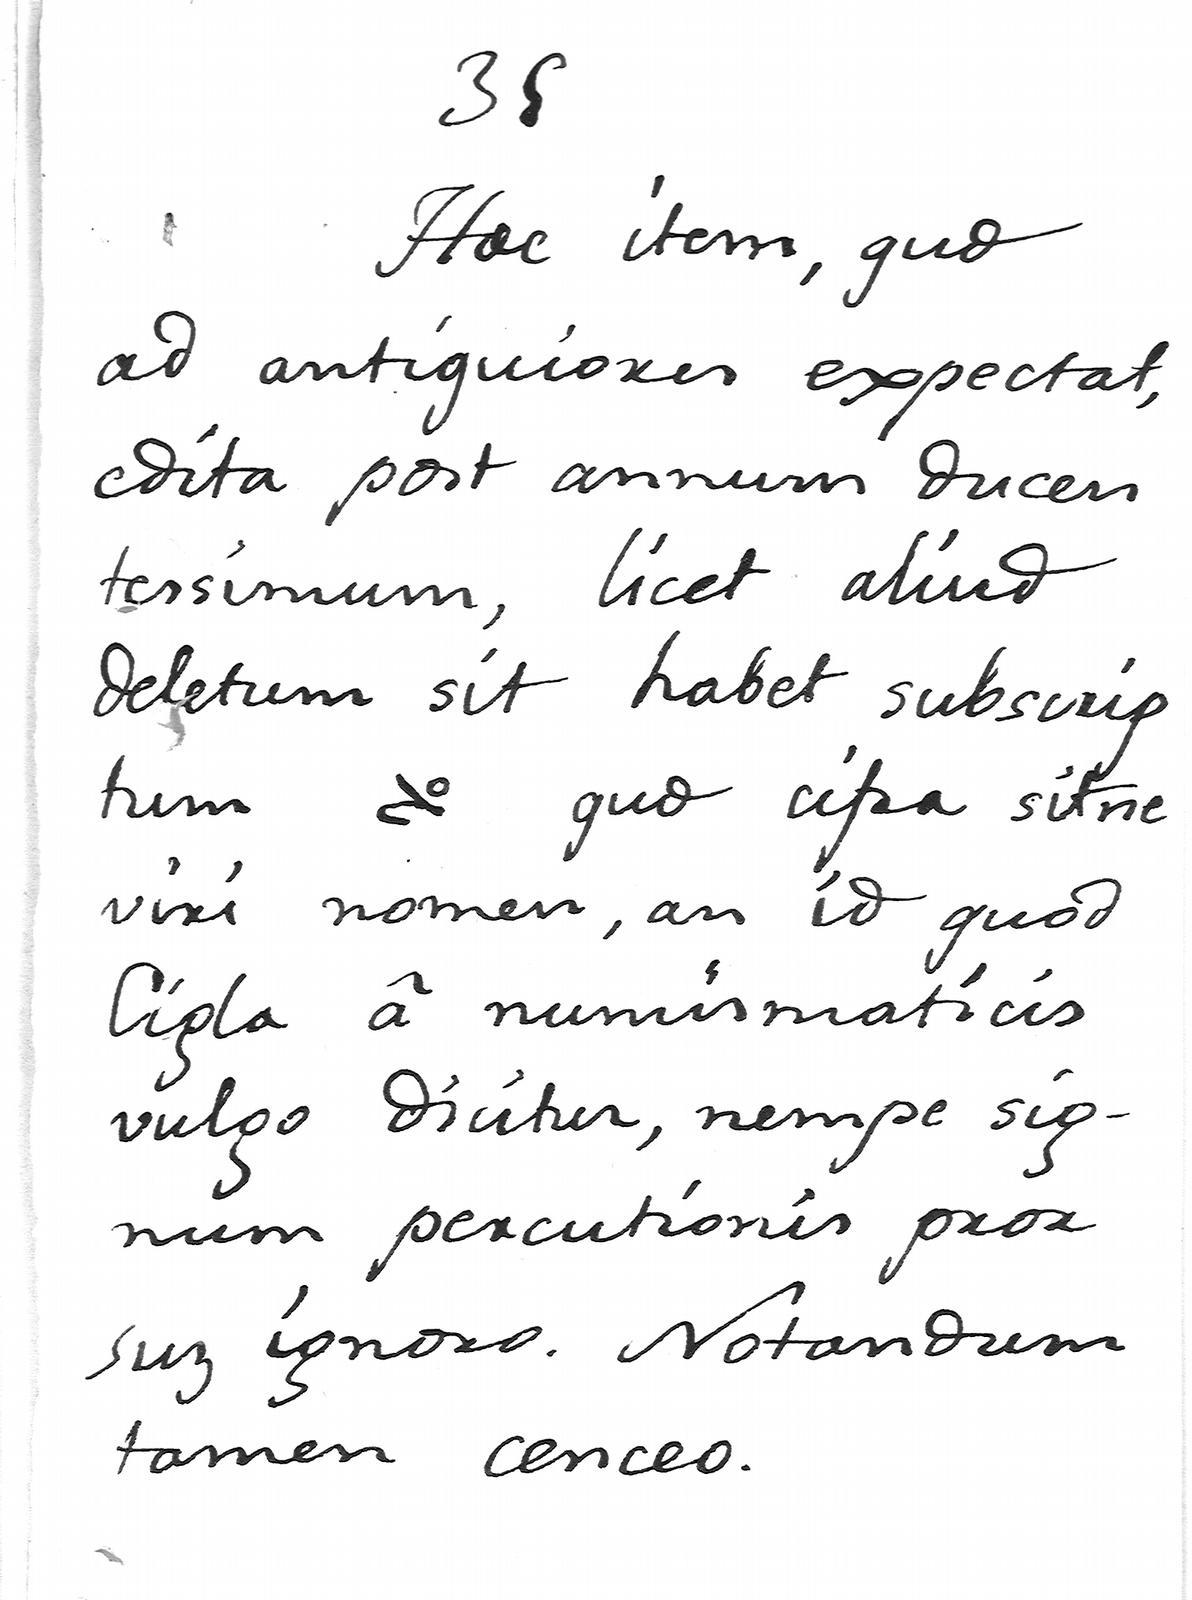 38
Hoc item, qud
ad antiquiores expectat,
edita post annum ducen
tessimum, licet aliud
deletum sit habet subscrip
tum qud cifra sitne
viri nomen, an id quod
Cigla â numismaticis
vulgo dicitur, nempe sig-
num percutionis pror
suz ignoro. Notandum
tamen cenceo.